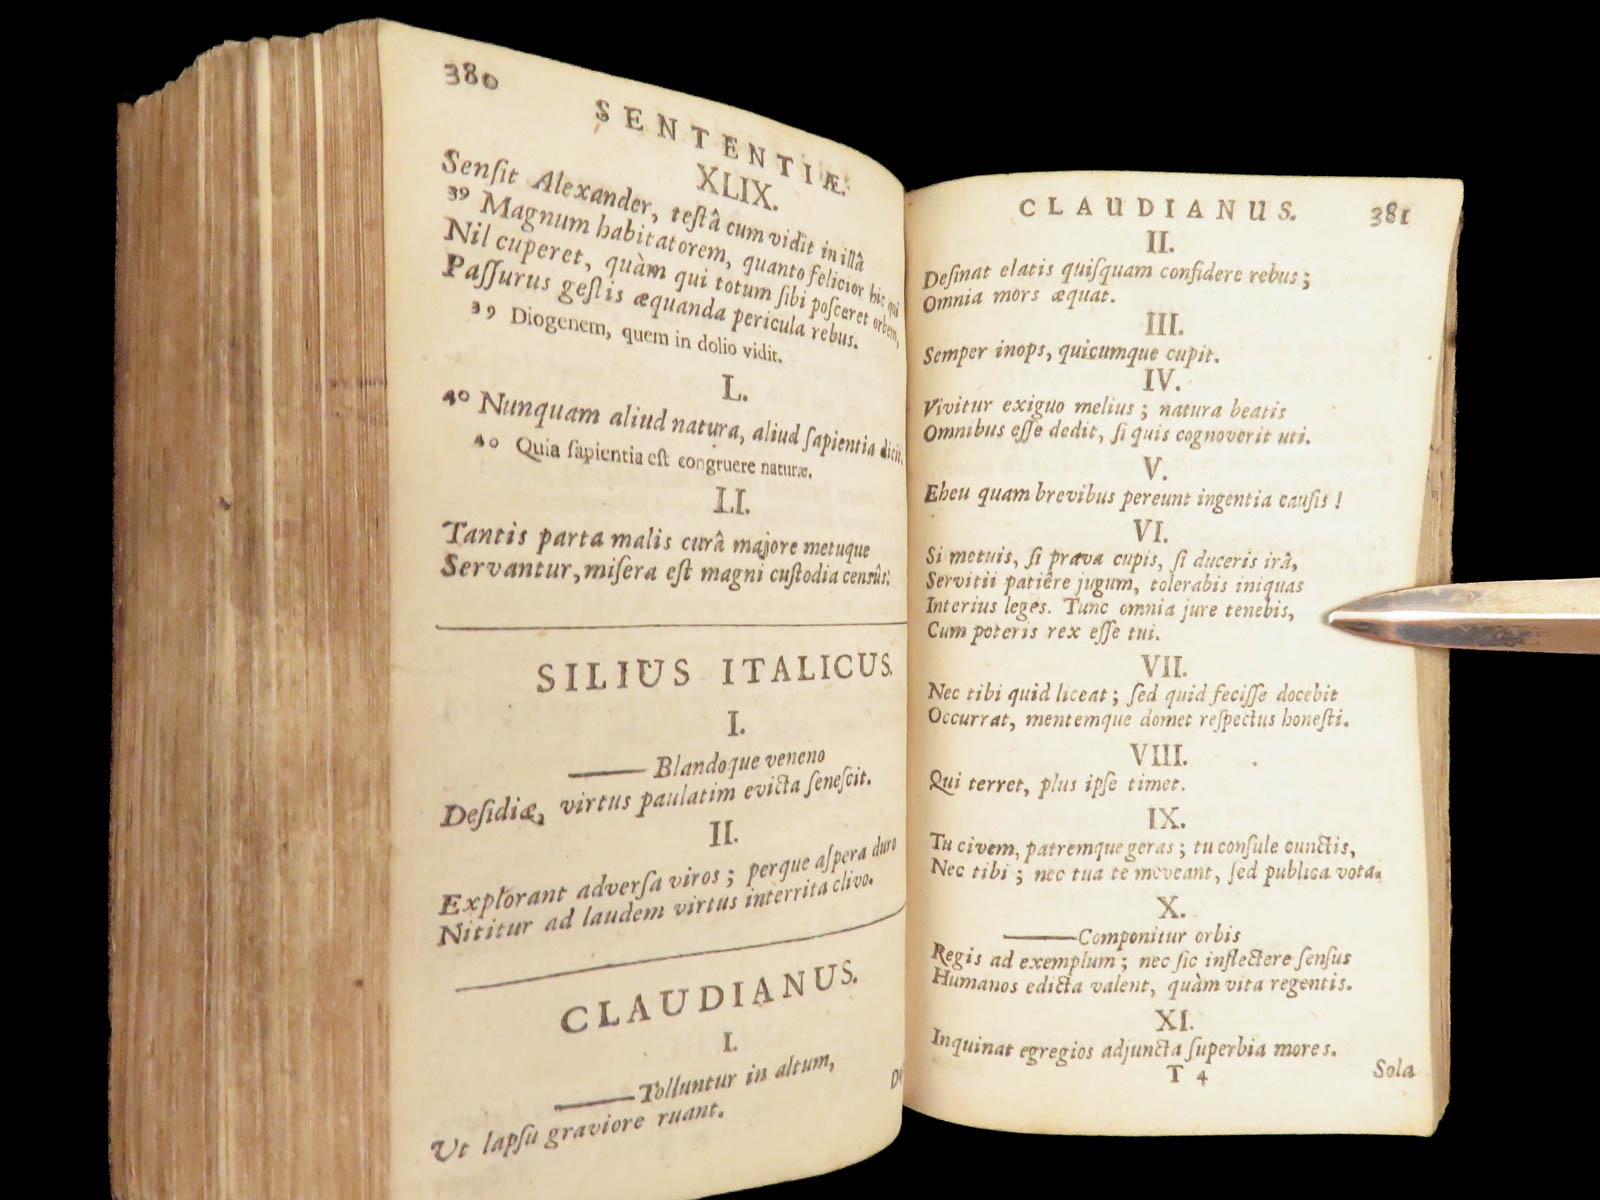 380
SENTENTIÆ.
XLIX.
Senſit Alexander, teſtâ cum vidit in illâ
39 Magnum habitatorem, quanto felicior hic qui
Nil cuperet, quàm qui totum ſibi poſceret orbem,
Paſſurus geſtis æquanda pericula rebus.
39 Diogenem, quem in dolio vidit.
L.
40 Nunquam aliud natura, aliud ſapientia dicit.
40 Quia ſapientia eſt congruere naturæ.
LI.
Tantis parta malis curâ majore metuque
Servantur, miſera eſt magni cuſtodia censûs.
SILIUS ITALICUS.
I.
——Blandoque veneno
Deſidiæ, virtus paulatim evicta ſeneſcit.
II.
Explorant adverſa viros; perque aſpera duro
Nititur ad laudem virtus interrita clivo.
CLAUDIANUS.
I.
——Tolluntur in altum,
Ut lapſu graviore ruant.
CLAUDIANUS. 381
II.
Deſinat elatis quiſquam confidere rebus;
Omnia mors æquat.
III.
Semper inops, quicumque cupit.
IV.
Vivitur exiguo melius; natura beatis
Omnibus eſſe dedit, ſi quis cognoverit uti.
V.
Eheu quam brevibus pereunt ingentia cauſis!
VI.
Si metuis, ſi prava cupis, ſi duceris irâ,
Servitii patiêre jugum, tolerabis iniquas
Interius leges. Tunc omnia jure tenebis,
Cum poteris rex eſſe tui.
VII.
Nec tibi quid liceat; ſed quid feciſſe docebit
Occurrat, mentemque domet reſpectus honeſti.
VIII.
Qui terret, plus ipſe timet.
IX.
Tu civem, patremque geras; tu conſule cunctis,
Nec tibi; nec tua te moveant, ſed publica vota.
X.
——Componitur orbis
Regis ad exemplum; nec ſic inflectere ſenſus
Humanos edicta valent, quàm vita regentis.
XI.
Inquinat egregios adjuncta ſuperbia mores.
T 4 Sola